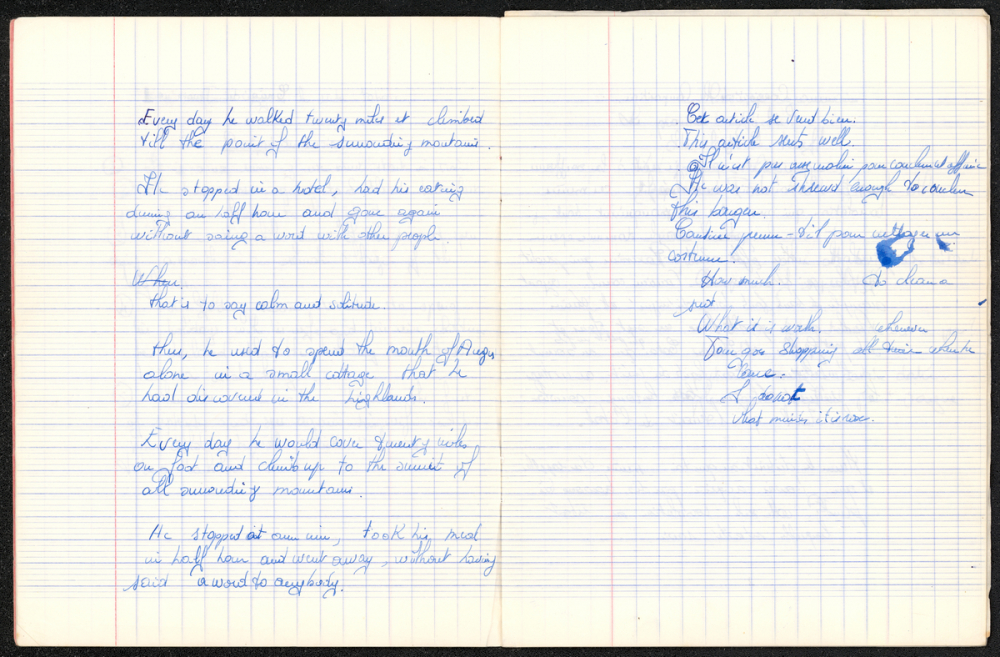 Every day he walked twenty miles et climbed
till the point of the surrounding mountains.
He stopped in a hotel, had his eating
during an half hour and gone again
without saing a word with other people.
When.
that is to say calm and solitude.
thus, he used to spend the month of Augus
alone in a small cottage that he
had discovered in the highlands.
Every day he would cover twenty miles
on foot and climb up to the summit of
all surrounding mountains.
He stopped at an inn, took his meal
in half hour and went away, without having
said a word to anybody.
Cet article se vend bien.
This article sents well.
Il n'est pas assez malin pour conclure cet affaire
He was not shrewd enough to conclude
this bargen.
Combien prenn-t-il pour nettoyer un
costume.
How much. to clean a
suit
What it is worth. whenever
You go shopping
I do not
what it is